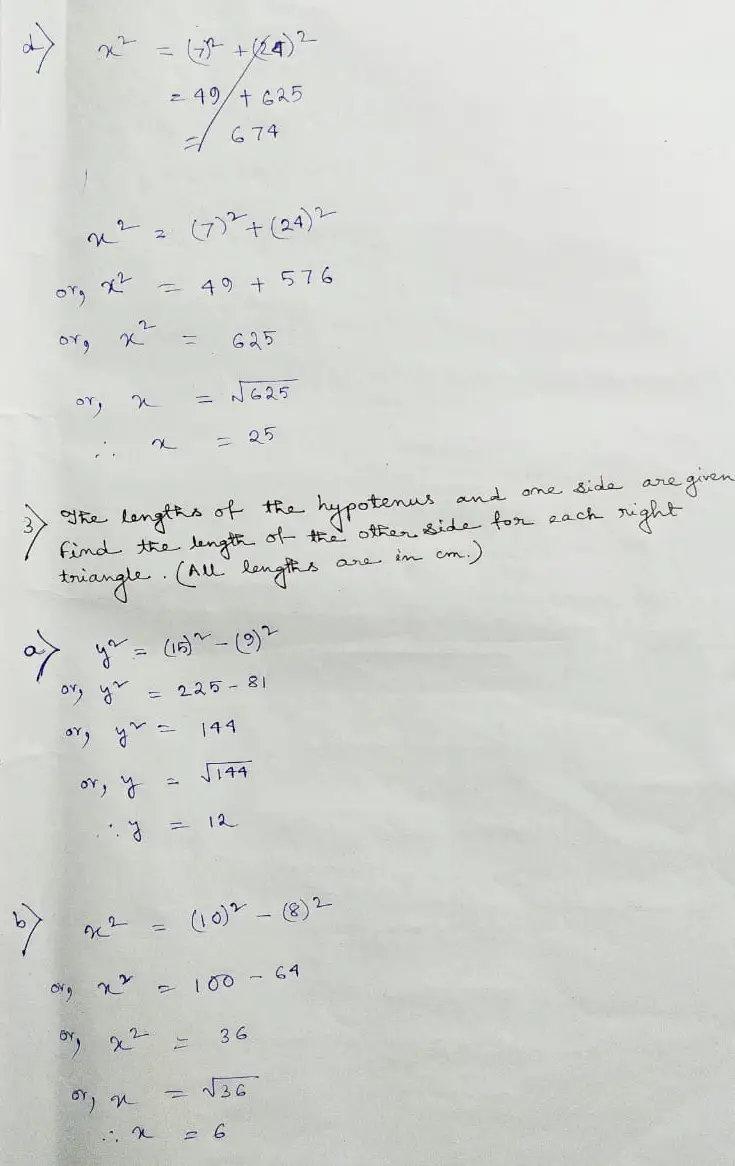 d) x² = (7)² + (24)²
= 49 + 625
= 674
x² = (7)² + (24)²
or, x² = 49 + 576
or, x² = 625
or, x = √625
∴ x = 25
3) The lengths of the hypotenus and one side are given
Find the length of the other side for each right
triangle. (All lengths are in cm.)
a) y² = (15)² - (9)²
or, y² = 225 - 81
or, y² = 144
or, y = √144
∴ y = 12
b) x² = (10)² - (8)²
or, x² = 100 - 64
or, x² = 36
or, x = √36
∴ x = 6